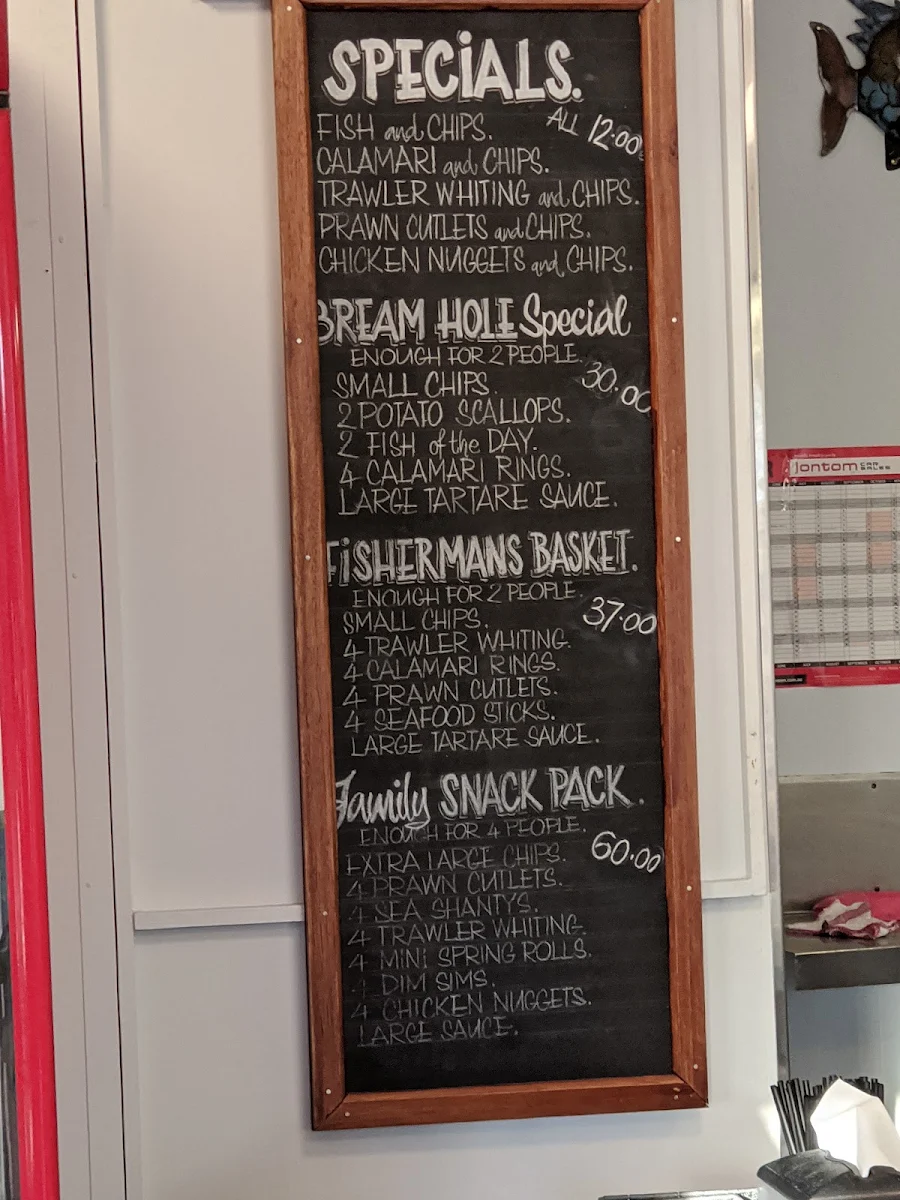 SPECIALS.
ALL 12:00
FISH and CHIPS.
CALAMARI and CHIPS.
TRAWLER WHITING and CHIPS.
PRAWN CUTLETS and CHIPS.
CHICKEN NUGGETS and CHIPS.
BREAM HOLE Special
ENOUGH FOR 2 PEOPLE.
30.00
SMALL CHIPS.
2 POTATO SCALLOPS.
2 FISH of the DAY.
4 CALAMARI RINGS.
LARGE TARTARE SAUCE.
FISHERMANS BASKET.
ENOUGH FOR 2 PEOPLE.
37.00
SMALL CHIPS.
4 TRAWLER WHITING.
4 CALAMARI RINGS.
4 PRAWN CUTLETS.
4 SEAFOOD STICKS.
LARGE TARTARE SAUCE.
Family SNACK PACK.
ENOUGH FOR 4 PEOPLE.
60.00
EXTRA LARGE CHIPS.
4 PRAWN CUTLETS.
4 SEA SHANTY'S.
4 TRAWLER WHITING
4 MINI SPRING ROLLS.
4 DIM SIMS.
4 CHICKEN NUGGETS.
LARGE SAUCE.
jontom CAR SALES